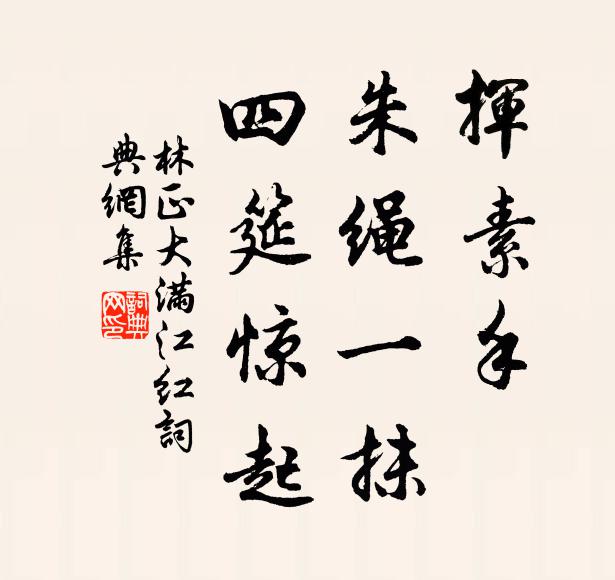 揮素手
朱绳一抹
四筵惊起
林正大满江红詞
典網集
詞典网印